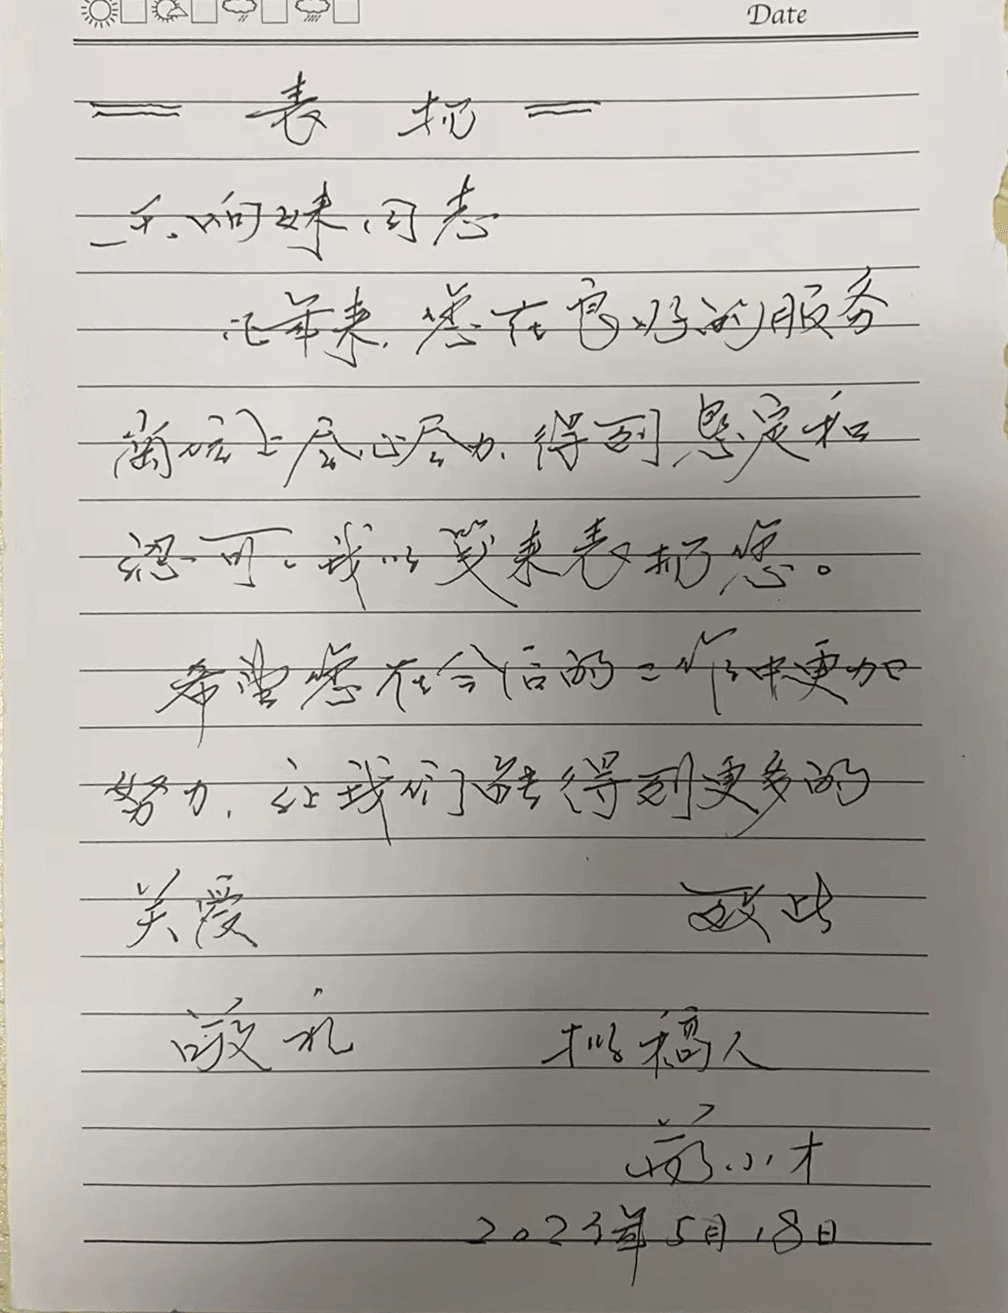 Date
表 扬
王响妹同志
近年来,您在良好的服务
岗位上尽心尽力,得到恳定和
认可。我以笺来表扬您。
希望您在今后的工作中更加
努力,让我们能得到更多的
关爱 致此
敬礼 拟稿人
小才
2023年5月18日